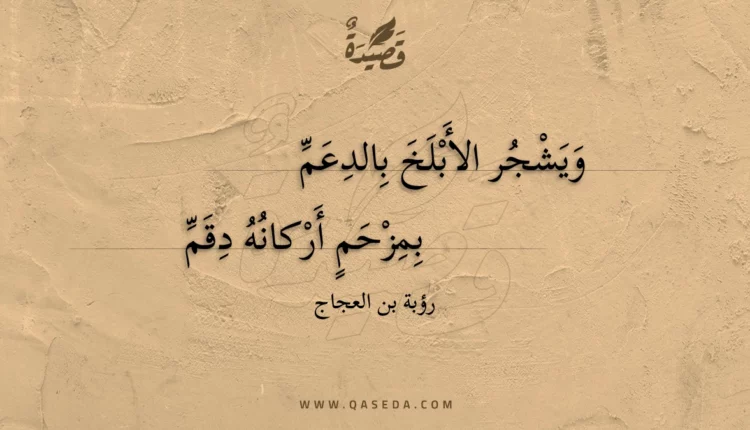 قَصِيْدَةٌ
وَيَشْجُر الأَبْلَخَ بِالدِعَمِّ
بِمِزْحَمٍ أَرْكانُهُ دِقَمِّ
رؤبة بن العجاج
WWW.QASEDA.COM